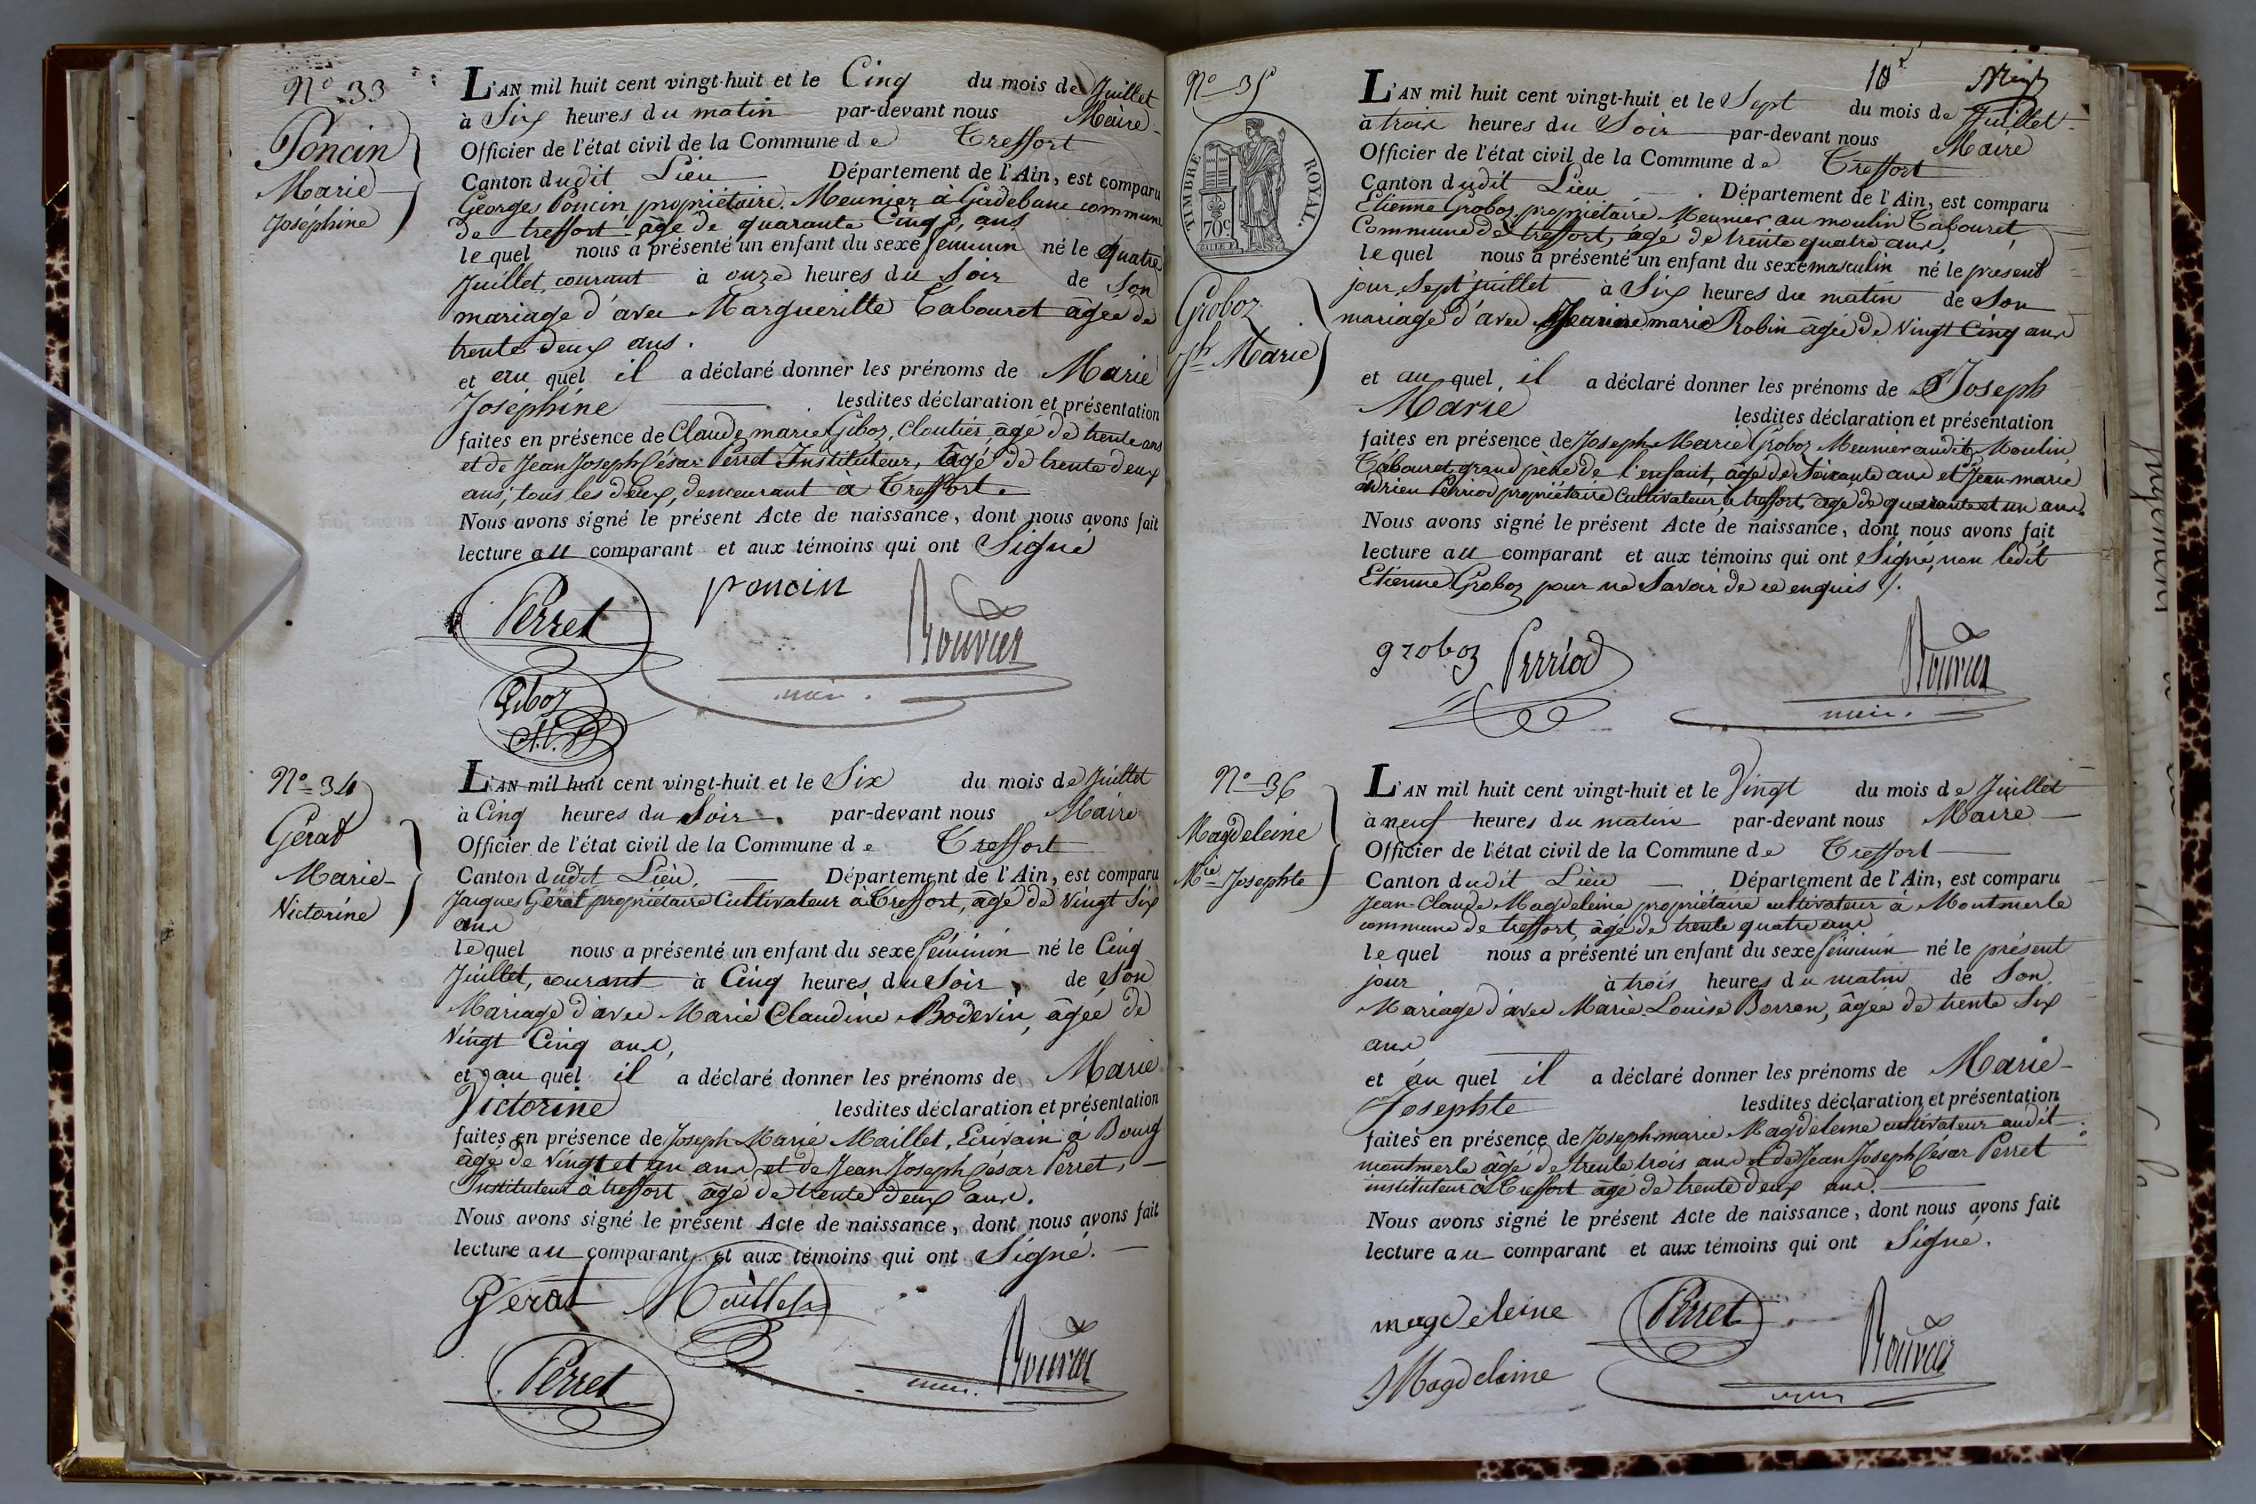 N° 33
Poncin
Marie
Joséphine
L'AN mil huit cent vingt-huit et le Cinq du mois de Juillet
à Six heures du matin par-devant nous Maire
Officier de l'état civil de la Commune de Treffort
Canton dudit Lieu Département de l'Ain, est comparu
Georges Poncin propriétaire Meunier à Gadebane commune
de treffort âgé de quarante Cinq ans
lequel nous a présenté un enfant du sexe féminin né le quatre
Juillet, courant à onze heures du Soir de Son
mariage d'avec Margueritte Cabouret âgée de
trente deux ans.
et au quel il a déclaré donner les prénoms de Marie
Joséphine lesdites déclaration et présentation
faites en présence de Claude marie Giboz, Cloutier, âgé de trente ans
et de Jean Joseph César Perret Instituteur, âgé de trente deux
ans, tous les deux, demeurant à Treffort.
Nous avons signé le présent Acte de naissance, dont nous avons fait
lecture au comparant et aux témoins qui ont Signé
Perret poncin Bouvier
maire.
Giboz
N° 34
Gerat
Marie
Victorine
L'AN mil huit cent vingt-huit et le Six du mois de Juillet
à Cinq heures du Soir par-devant nous Maire
Officier de l'état civil de la Commune de Treffort
Canton dudit Lieu. Département de l'Ain, est comparu
Jacques Gerat propriétaire Cultivateur à Treffort, âgé de Vingt Six
ans
lequel nous a présenté un enfant du sexe féminin né le Cinq
Juillet, courant à Cinq heures du Soir, de Son
Mariage d'avec Marie Claudine Bodevin, âgée de
Vingt Cinq ans,
et au quel il a déclaré donner les prénoms de Marie
Victorine lesdites déclaration et présentation
faites en présence de Joseph Marie Maillet, Ecrivain à Bourg
âgé de Vingt et un ans et de Jean Joseph César Perret,
Instituteur à treffort âgé de trente deux ans.
Nous avons signé le présent Acte de naissance, dont nous avons fait
lecture au comparant et aux témoins qui ont Signé.
Gerat Maillet
Perret Bouvier
maire.
N° 35
TIMBRE ROYAL.
70c
Groboz
Jh Marie
L'AN mil huit cent vingt-huit et le Sept du mois de Juillet
à trois heures du Soir par-devant nous Maire
Officier de l'état civil de la Commune de Treffort
Canton dudit Lieu Département de l'Ain, est comparu
Etienne Groboz propriétaire Meunier au moulin Cabouret,
Commune de treffort, âgé de trente quatre ans,
lequel nous a présenté un enfant du sexe masculin né le présent
jour, Sept juillet à Six heures du matin de Son
mariage d'avec Jeanne marie Robin âgée de Vingt Cinq ans
et au quel il a déclaré donner les prénoms de Joseph
Marie lesdites déclaration et présentation
faites en présence de Joseph Marie Groboz Meunier audit Moulin
Cabouret, grand père de l'enfant, âgé de Soixante ans et Jean-marie
adrien Perriod propriétaire Cultivateur, à treffort âgé de quarante et un ans.
Nous avons signé le présent Acte de naissance, dont nous avons fait
lecture au comparant et aux témoins qui ont Signé, non ledit
Etienne Groboz pour ne Savoir de ce enquis /.
groboz Perriod Bouvier
maire.
N° 36
Magdeleine
Mie Josephte
L'AN mil huit cent vingt-huit et le Vingt du mois de Juillet
à neuf heures du matin par-devant nous Maire
Officier de l'état civil de la Commune de Treffort
Canton dudit Lieu Département de l'Ain, est comparu
Jean-Claude Magdeleine propriétaire cultivateur à Montmerle
commune de treffort, âgé de trente quatre ans
lequel nous a présenté un enfant du sexe féminin né le présent
jour à trois heures du matin de Son
Mariage d'avec Marie Louise Borron, âgée de trente Six
ans
et au quel il a déclaré donner les prénoms de Marie
Josephte lesdites déclaration et présentation
faites en présence de Joseph marie Magdeleine cultivateur audit
montmerle âgé de trente trois ans et de Jean Joseph César Perret
instituteur à Treffort âgé de trente deux ans.
Nous avons signé le présent Acte de naissance, dont nous avons fait
lecture au comparant et aux témoins qui ont Signé.
magdeleine Perret Bouvier
Magdeleine maire